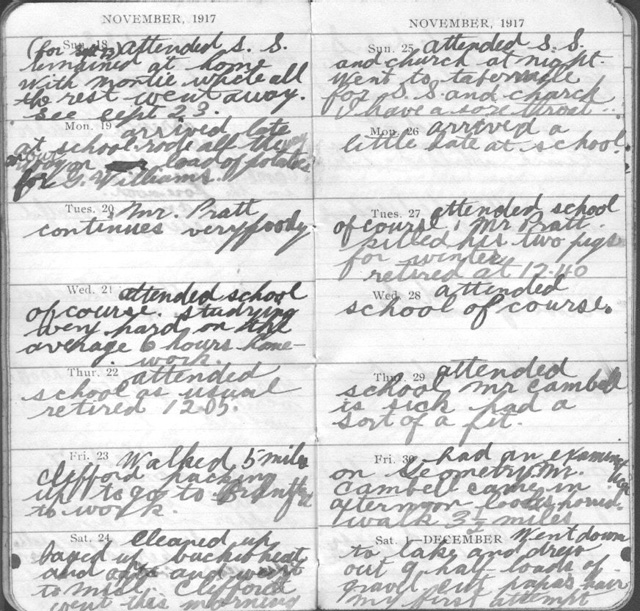 NOVEMBER, 1917
Sun. 18 attended S. S.
remained at home
with Montie while all
the rest went away.
see Sept 23.
Mon. 19 arrived late
at school rode all the way
on load of potatoes
for G. Williams.
Tues. 20 Mr. Pratt
continues very poorly
Wed. 21 attended school
of course. studying
very hard on the
average 6 hours home-
work.
Thur. 22 attended
school as usual
retired 12:05.
Fri. 23 Walked 5 miles
Clifford packing
up to go to
to work.
Sat. 24 Cleaned up
baged up buckwheat
and oats and went
to mill. Clifford
went this morning
NOVEMBER, 1917
Sun. 25 attended S. S.
and church at night.
Went to tabernacle
for S. S. and church
I have a sore throat.
Mon. 26 arrived a
little late at school.
Tues. 27 attended school
of course, Mr Pratt
killed his two pigs
for winter
retired at 12:40
Wed. 28 attended
school of course.
Thur. 29 attended
school Mr Cambell
is sick had a
sort of a fit.
Fri. 30 had an examination
on Geometry. Mr.
Cambell came in
afternoon
walk 3½ miles
Sat. 1—DECEMBER Went down
to lake and drew
out 9 half loads of
gravel cut papa's hair
my first attempt